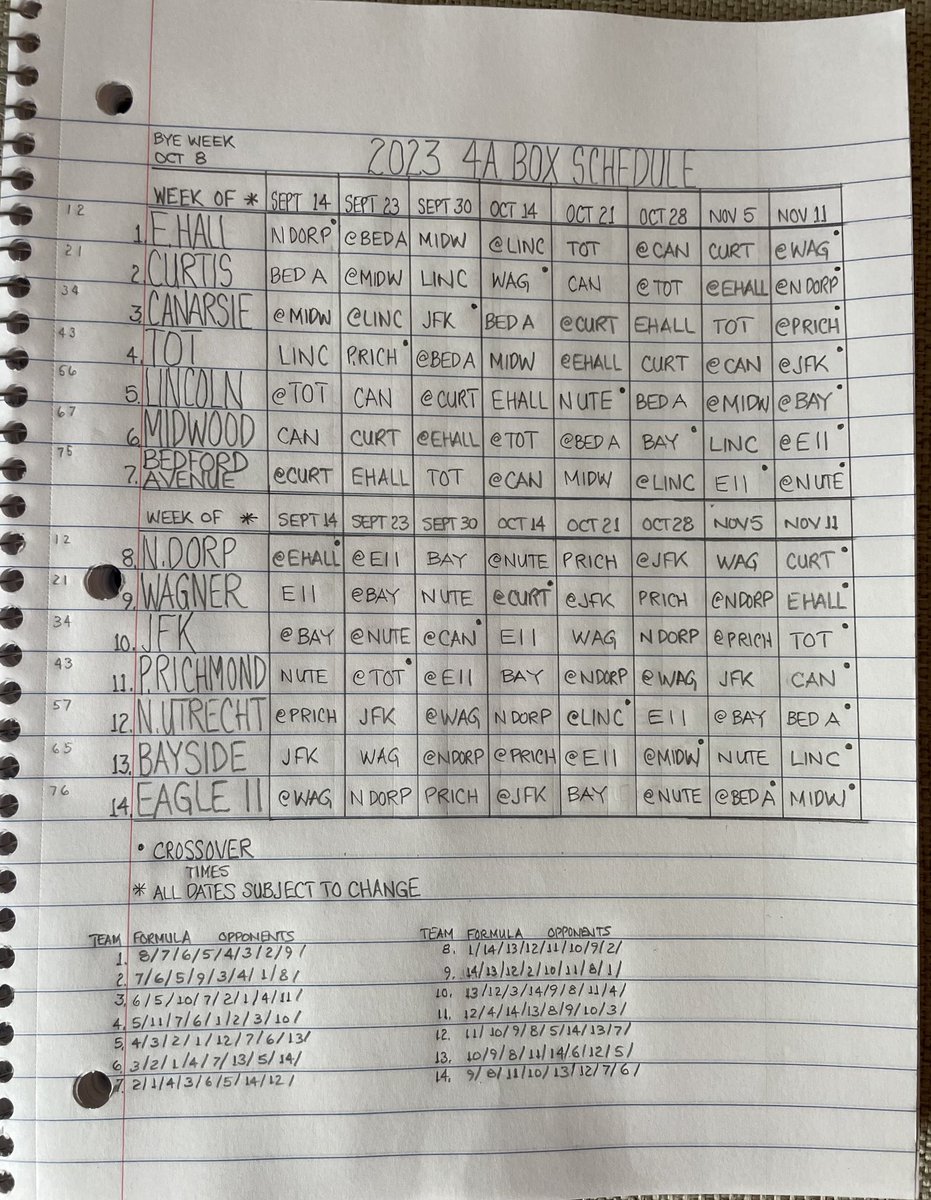 BYE WEEK
OCT 8
2023 4A BOX SCHEDULE
WEEK OF * SEPT 14 SEPT 23 SEPT 30 OCT 14 OCT 21 OCT 28 NOV 5 NOV 11
12 1. E.HALL NDORP• @BED A MIDW @LINC TOT @CAN CURT @WAG•
21 2. CURTIS BED A @MIDW LINC WAG• CAN @TOT @EHALL @NDORP•
34 3. CANARSIE @MIDW @LINC JFK• BED A @CURT EHALL TOT @PRICH•
43 4. TOT LINC P.RICH• @BED A MIDW @EHALL CURT @CAN @JFK•
56 5. LINCOLN @TOT CAN @CURT EHALL NUTE• BED A @MIDW @BAY•
67 6. MIDWOOD CAN CURT @EHALL @TOT @BED A BAY• LINC @E11•
75 7. BEDFORD AVENUE @CURT EHALL TOT @CAN MIDW @LINC E11• @NUTE•
WEEK OF * SEPT 14 SEPT 23 SEPT 30 OCT 14 OCT 21 OCT 28 NOV 5 NOV 11
12 8. N.DORP @EHALL• @E11 BAY @NUTE PRICH @JFK WAG CURT•
21 9. WAGNER E11 @BAY NUTE @CURT• @JFK PRICH @NDORP EHALL•
34 10. JFK @BAY @NUTE @CAN• E11 WAG NDORP @PRICH TOT•
43 11. P.RICHMOND NUTE @TOT• @E11 BAY @NDORP @WAG JFK CAN•
57 12. N.UTRECHT @PRICH JFK @WAG NDORP @LINC• E11 @BAY BED A•
65 13. BAYSIDE JFK WAG @NDORP @PRICH @E11 @MIDW• NUTE LINC•
76 14. EAGLE 11 @WAG NDORP PRICH @JFK BAY @NUTE @BED A• MIDW•
• CROSSOVER
TIMES
* ALL DATES SUBJECT TO CHANGE
TEAM FORMULA OPPONENTS
1. 8/7/6/5/4/3/2/9/
2. 7/6/5/9/3/4/1/8/
3. 6/5/10/7/2/1/4/11/
4. 5/11/7/6/1/2/3/10/
5. 4/3/2/1/12/7/6/13/
6. 3/2/1/4/7/13/5/14/
7. 2/1/4/3/6/5/14/12/
TEAM FORMULA OPPONENTS
8. 1/14/13/12/11/10/9/2/
9. 14/13/12/2/10/11/8/1/
10. 13/12/3/14/9/8/11/4/
11. 12/4/14/13/8/9/10/3/
12. 11/10/9/8/5/14/13/7/
13. 10/9/8/11/14/6/12/5/
14. 9/8/11/10/13/12/7/6/